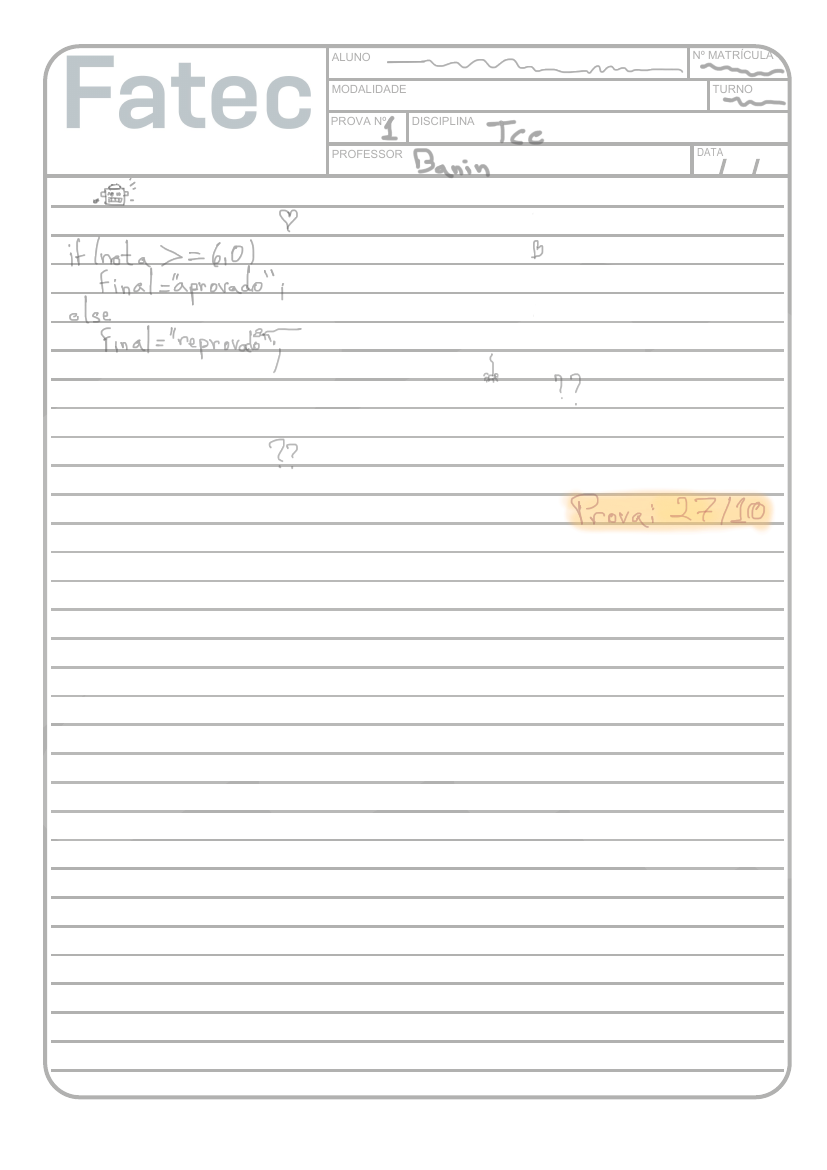 Fatec
ALUNO
Nº MATRÍCULA
MODALIDADE
TURNO
PROVA Nº 1 DISCIPLINA Tcc
PROFESSOR Banin DATA / /
if (nota >= 6,0)
final = "aprovado";
else
final = "reprovado";
??
??
Prova: 27/10